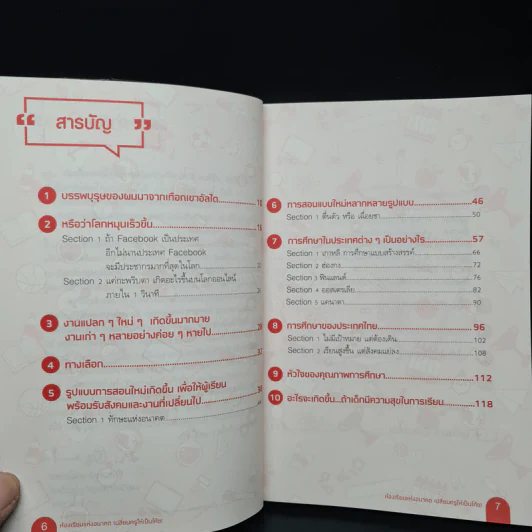 สารบัญ
1 บรรพบุรุษของผมมาจากเทือกเขาอัลไต
2 หรือว่าโลกหมุนเร็วขึ้น
Section 1 ถ้า Facebook เป็นประเทศ
อีกไม่นานประเทศ Facebook
จะมีประชากรมากที่สุดในโลก
Section 2 แค่กะพริบตา เกิดอะไรขึ้นบนโลกออนไลน์
ภายใน 1 วินาที
3 งานแปลก ๆ ใหม่ ๆ เกิดขึ้นมากมาย
งานเก่า ๆ หลายอย่างค่อย ๆ หายไป
4 ทางเลือก
5 รูปแบบการสอนใหม่เกิดขึ้น เพื่อให้ผู้เรียน
พร้อมรับสังคมและงานที่เปลี่ยนไป
Section 1 ทักษะแห่งอนาคต
6 ห้องเรียนแห่งอนาคต เปลี่ยนครูให้เป็นโค้ช
6 การสอนแบบใหม่หลากหลายรูปแบบ 46
Section 1 ตื่นตัว หรือ เฉื่อยชา 50
7 การศึกษาในประเทศต่าง ๆ เป็นอย่างไร 57
Section 1 เกาหลี การศึกษาแบบสร้างสรรค์ 66
Section 2 ฮ่องกง 72
Section 3 ฟินแลนด์ 76
Section 4 ออสเตรเลีย 82
Section 5 แคนาดา 90
8 การศึกษาของประเทศไทย 96
Section 1 ไม่มีเป้าหมาย แต่ต้องเดิน 102
Section 2 เรียนสูงขึ้น แต่สังคมแย่ลง 108
9 หัวใจของคุณภาพการศึกษา 112
10 อะไรจะเกิดขึ้น...ถ้าเด็กมีความสุขในการเรียน 118
ห้องเรียนแห่งอนาคต เปลี่ยนครูให้เป็นโค้ช 7